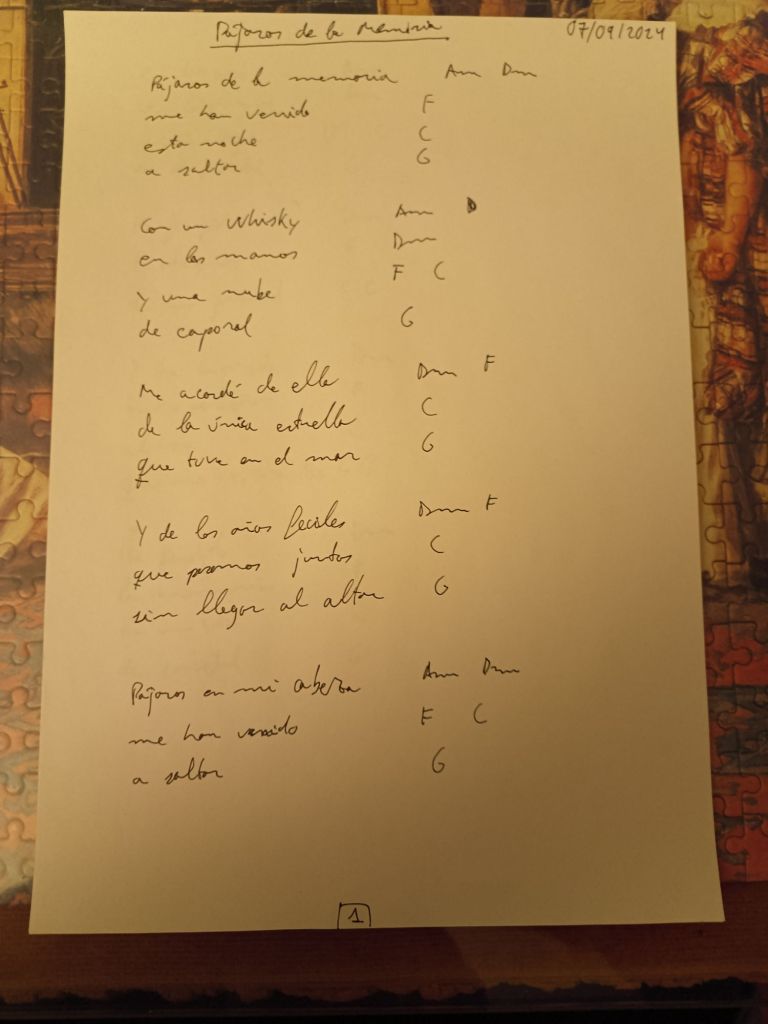 Pájaros de la Memoria 07/09/2024
Pájaros de la memoria Am Dm
me han venido F
esta noche C
a saltar G
Con un Whisky Am
en las manos Dm
Y una nube F C
de caporal G
Me acordé de ella Dm F
de la única estrella C
que tuve en el mar G
Y de los años feciles Dm F
que pasamos juntos C
sin llegar al altar G
Pájaros en mi cabeza Am Dm
me han venido F C
a saltar G
1